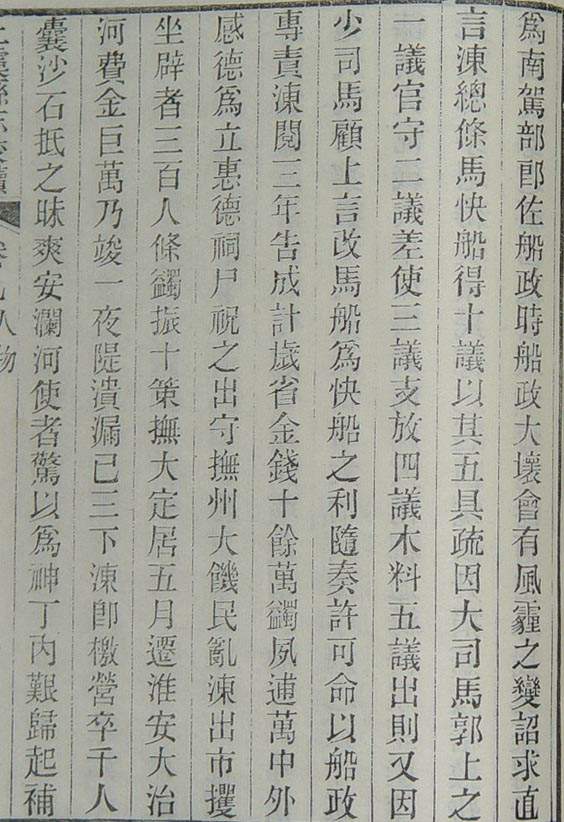 爲南駕部郎佐船政時船政大壞會有風霾之變詔求直
言涷總條馬快船得十議以其五具疏因大司馬郭上之
一議官守二議差使三議支放四議木料五議出則又因
少司馬顧上言改馬船爲快船之利隨奏許可命以船政
專責涷閱三年告成計歲省金錢十餘萬蠲夙逋萬中外
感德爲立惠德祠尸祝之出守撫州大饑民亂涷出市擭
坐辟者三百人條蠲振十策撫大定居五月遷淮安大治
河費金巨萬乃竣一夜隄潰漏已三下涷卽檄營卒千人
囊沙石抵之昧爽安瀾河使者驚以爲神丁內艱歸起補
上虞縣志校續 人物